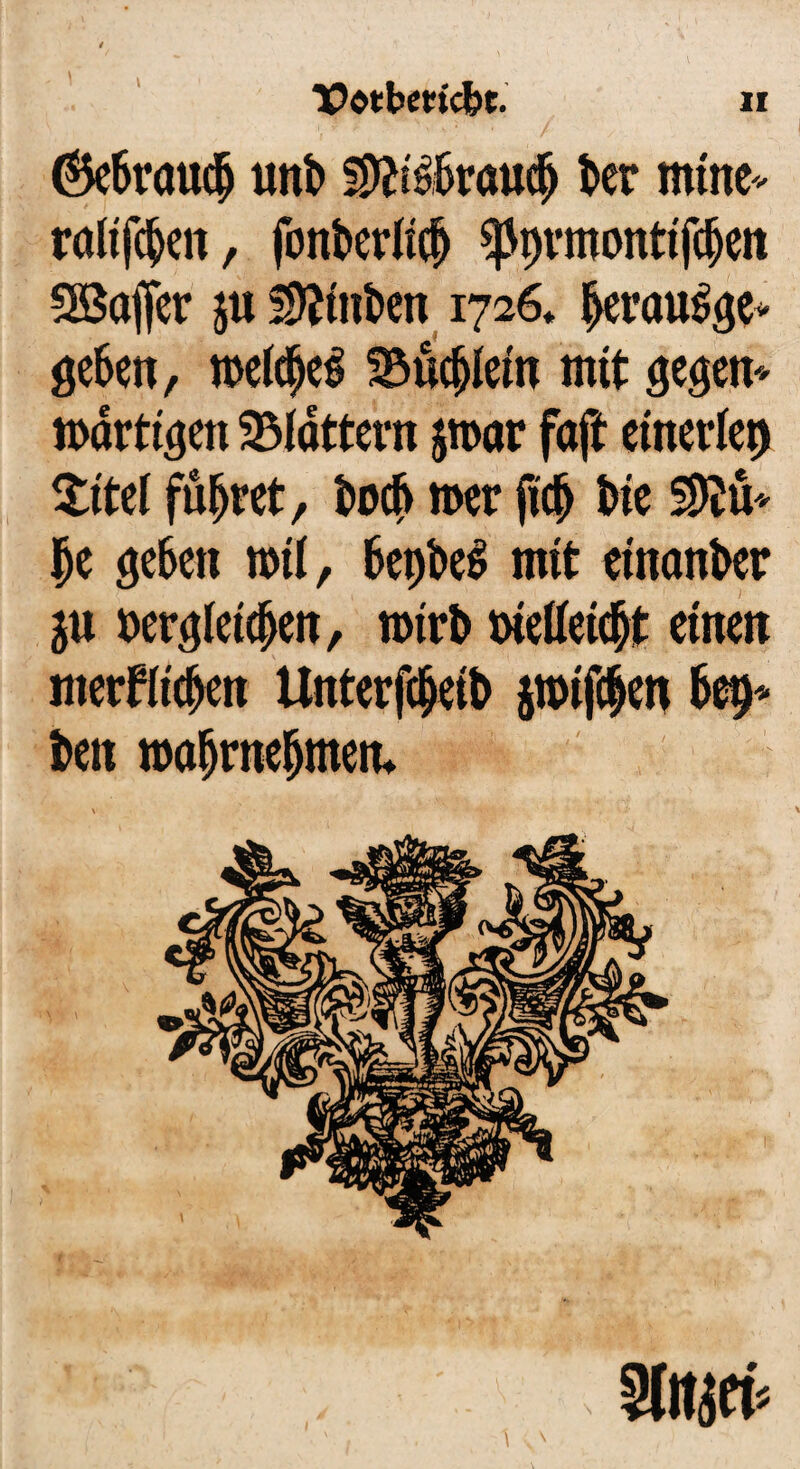 Vorbericht. 11
Gebrauch und Misbrauch der mine-
ralischen, sonderlich Pyrmontischen
Wasser zu Minden 1726. herausge-
geben, welches Büchlein mit gegen-
wärtigen Blättern zwar fast einerley
Titel führet, doch wer sich die Mü-
he geben wil, beydes mit einander
zu vergleichen, wird vielleicht einen
merklichen Unterscheid zwischen bey-
den wahrnehmen.
Anzei-